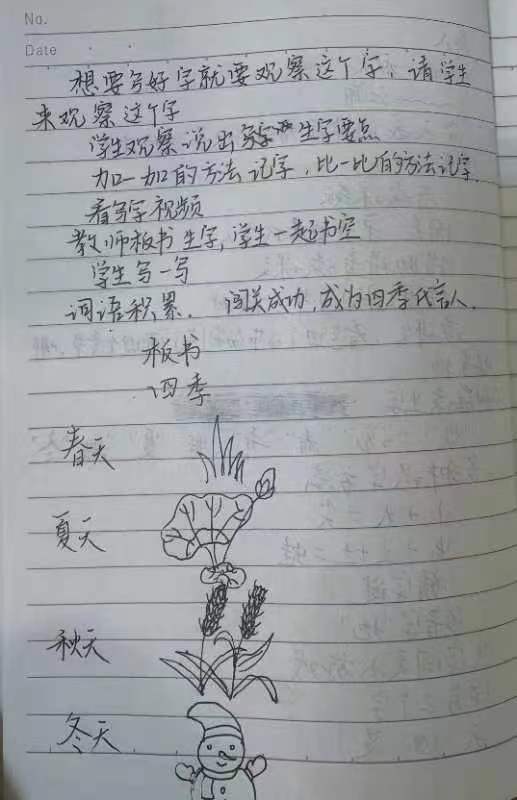 No.
Date
想要写好字就要观察这个字，请学生
来观察这个字
学生观察说出 生字要点
加一加的方法记字，比一比的方法记字.
看写字视频
教师板书生字，学生一起书空
学生写一写
词语积累. 闯关成功，成为四季代言人.
板书
四季
春天
夏天
秋天
冬天